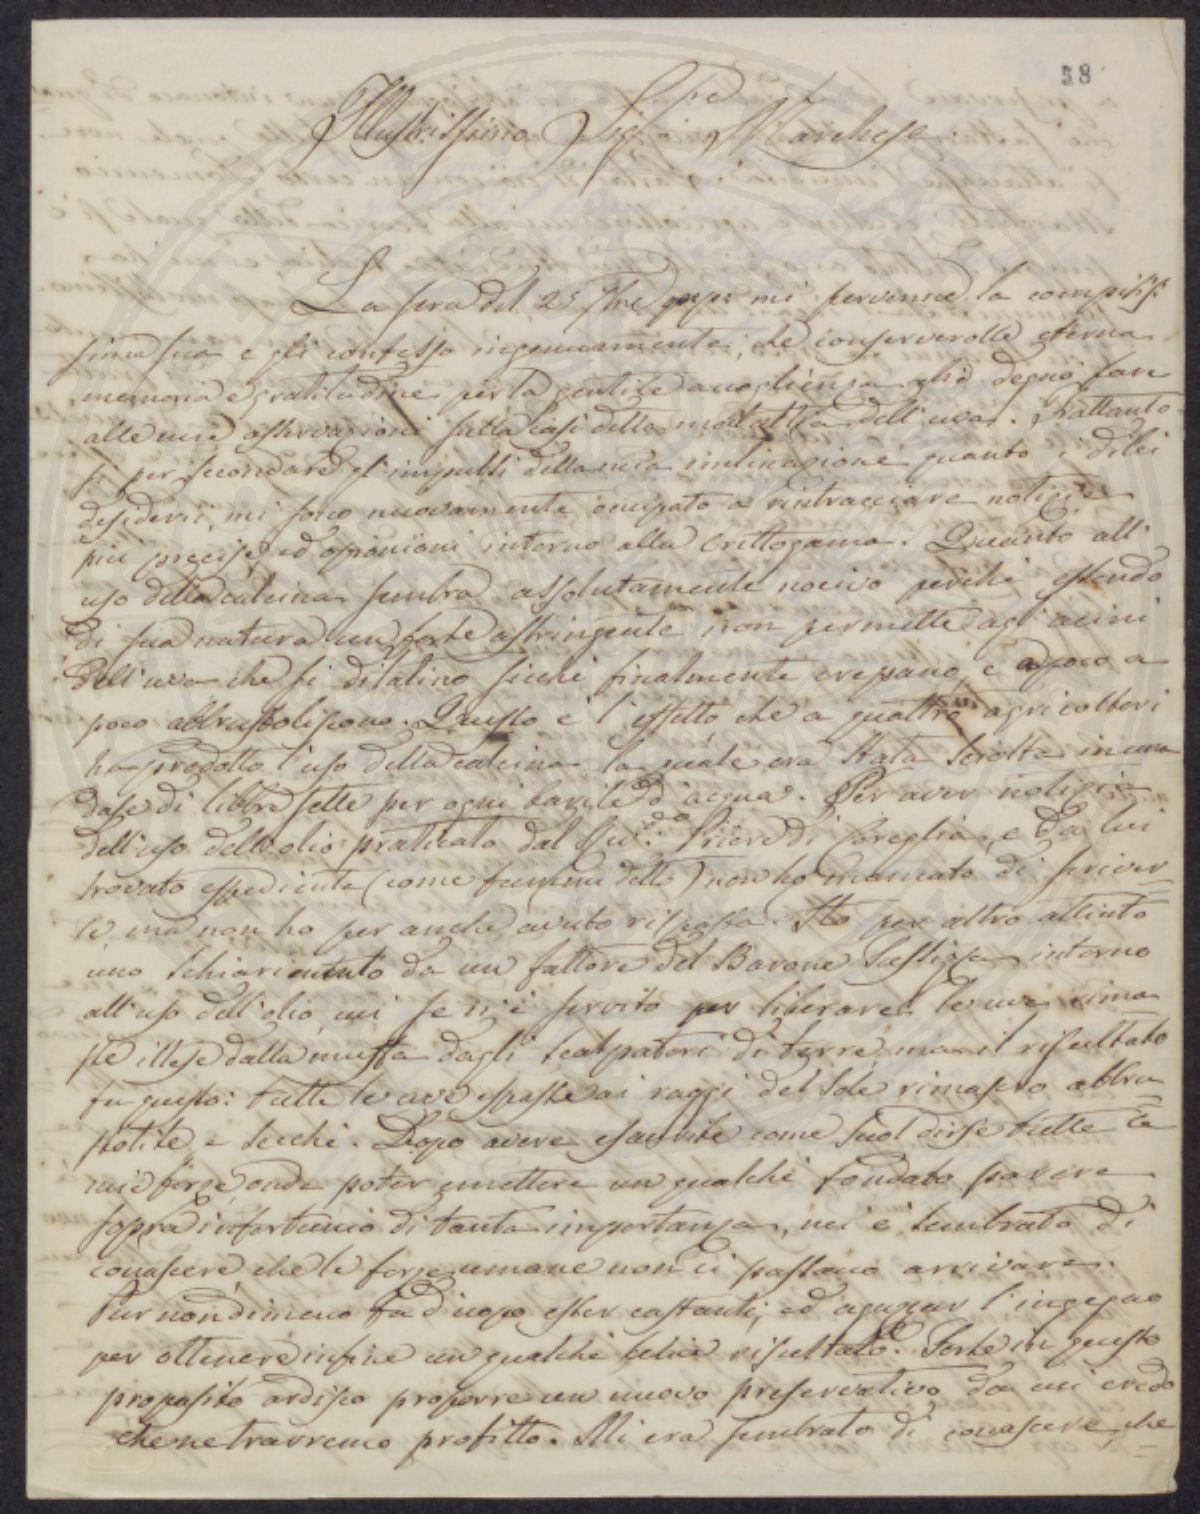 58
Illustrissimo Sig.re Marchese
La sera del 25 7bre mi pervenne la compitis
sima sua e gli confesso ingenuamente, che conserverolle eterna
memoria e gratitudine per la gentile accoglienza che degnò fare
alle mie osservazioni sulla crisi della malattia dell'uva. Frattanto
si per secondare gl'impulsi della mia inclinazione quanto i di lei
desiderii, mi sono nuovamente occupato a rintracciare notizie
più precise, ed opinioni intorno alla crittogama. Quanto all'
uso della calcina sembra assolutamente nocivo perchè essendo
di sua natura un forte astringente non permette agl'acini
dell'uva che si dilatino sicchè finalmente crepano, e a poco a
poco abbrustoliscono. Questo è l'effetto che a quattro agricoltori
ha prodotto l'uso della calcina la quale era stata sciolta in una
dose di libbre sette per ogni barile d'acqua. Per aver notizie
dell'uso dell'olio praticato dal Priore di Coreglia, e da lui
trovato espediente (come fummi detto) non ho mancato di scriver
le, ma non ho per anche avuto risposta. Ho per altro attinto
uno schiarimento da un fattore del Barone intorno
all'uso dell'olio, cui se n'è servito per liberare le uve rima
ste illese dalla muffa dagli scalpatori di terre, ma il risultato
fu questo: tutte le uve esposte ai raggi del Sole rimasero abbru
stolite e secche. Dopo avere esaurite come suol dirsi tutte le
mie forze, onde poter emettere un qualche fondato parere
sopra infortunio di tanta importanza, mi è sembrato di
conoscere che le forze umane non ci possano arrivare.
Pur nondimeno fa d'uopo esser costanti, ed aguzzar l'ingegno
per ottenere infine un qualche felice risultato. Perlochè in questo
proposito ardisco proporre un nuovo preservativo da cui credo
che ne trarremo profitto. Mi era sembrato di conoscere, che